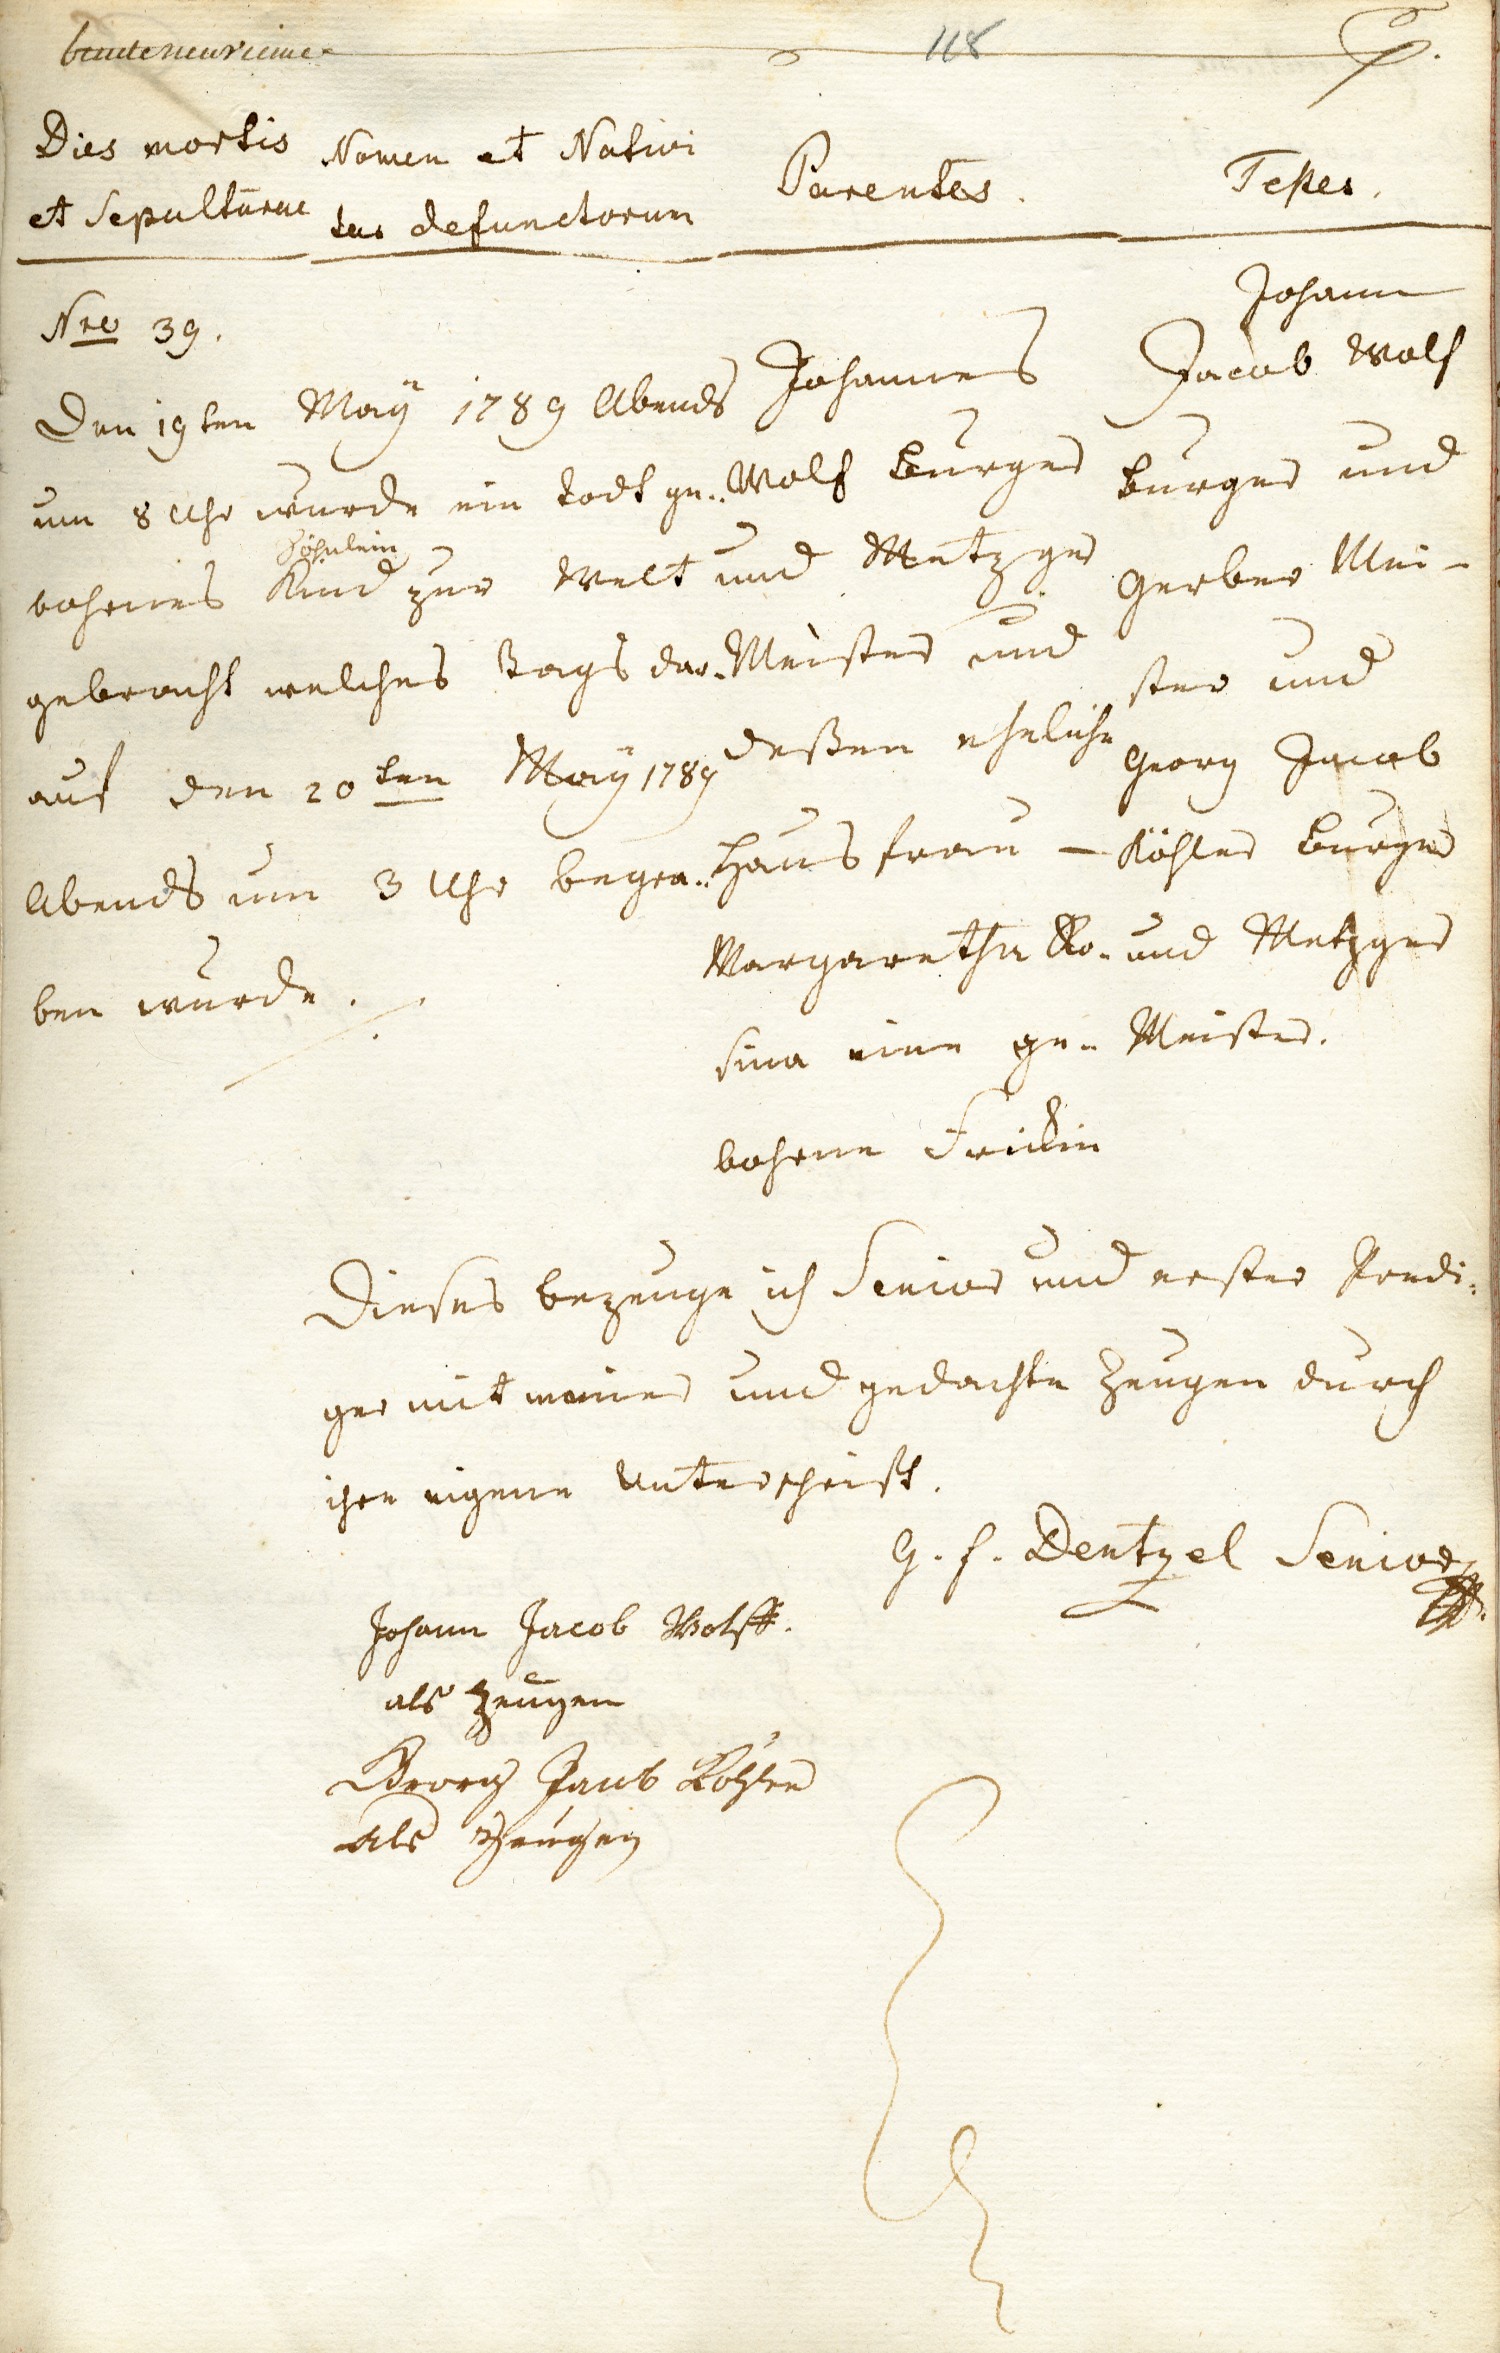 118
Dies mortis
et Sepulturae
Nomen et Nativi
tas defunctorum
Parentes.
Testes.
Nro 39.
Den 19ten May 1789 Abends
um 8 Uhr wurde ein todt ge..
Söhnlein
bohrnes Kind zur Welt
gebracht welches tags dar-
auf den 20ten May 1789
Abends um 3 Uhr begra..
ben wurde.
Johannes
Wolf Burger
und Metzger
Meister und
deßen eheliche
Hausfrau —
Margaretha Ro-
sina eine ge-
bohrne Frickin
Johann
Jacob Wolf
Burger und
Gerber Mei-
ster und
Georg Jacob
Köhler Burger
und Metzger
Meister.
Dieses bezeuge ich Senior und erster Predi-
ger mit meiner und gedachte Zeugen durch
ihre eigene Unterschrift.
G. F. Dentzel Senior
Johann Jacob Wolff.
als Zeugen
Georg Jacob Köhler
als Zeugen